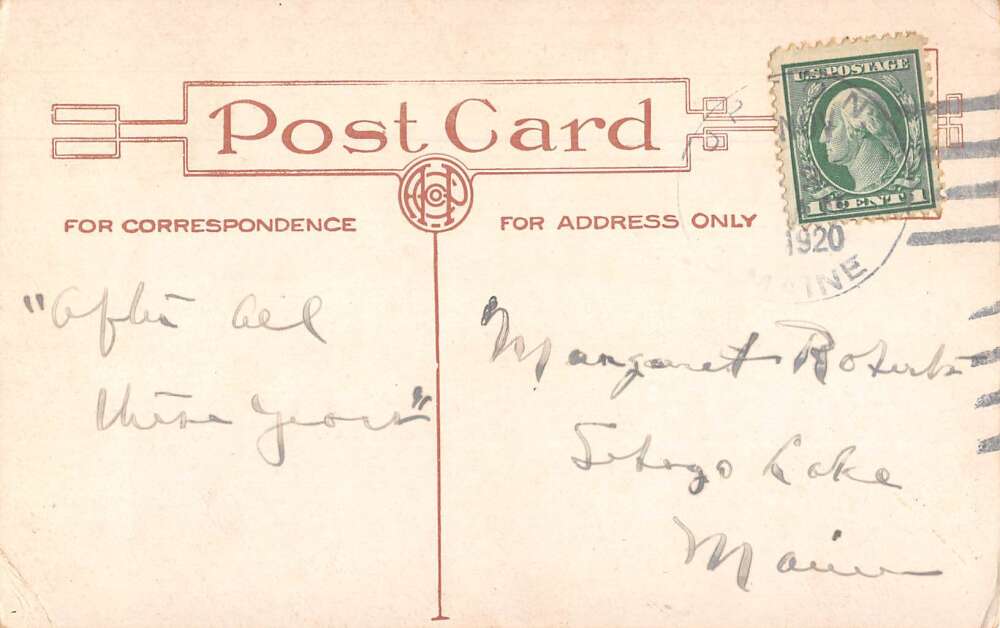 Post Card
FOR CORRESPONDENCE
FOR ADDRESS ONLY
U.S. POSTAGE
1 CENT 1
1920
MAINE
"After all
these years"
Margaret Roberts
Sebago Lake
Maine